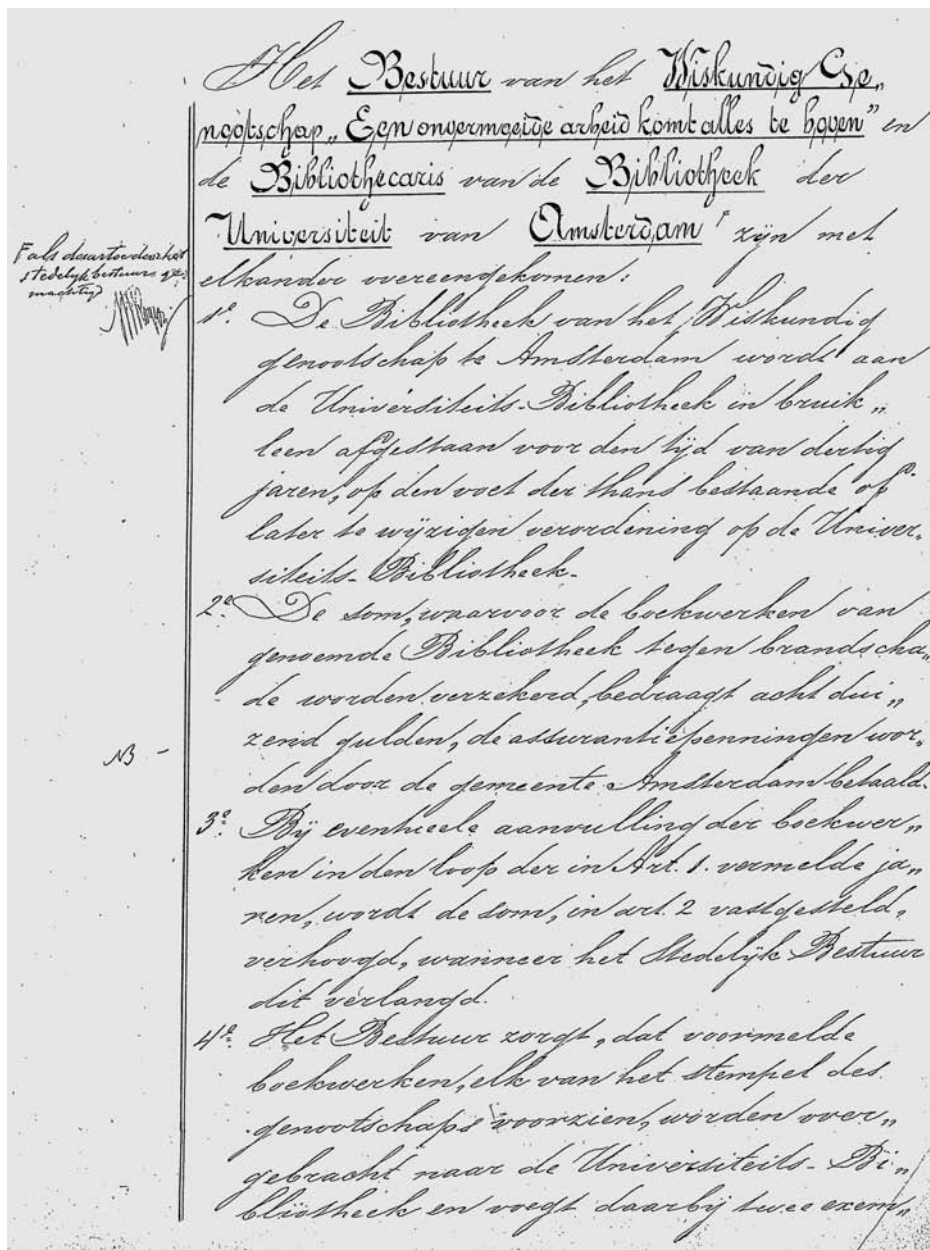 Het Bestuur van het Wiskundig Ge„
nootschap „Een onvermoeide arbeid komt alles te boven” en
de Bibliothecaris van de Bibliotheek der
Universiteit van Amsterdam F zijn met
elkander overeengekomen:
F als daartoe door het
stedelijk bestuur ge-
machtigd
1º. De Bibliotheek van het Wiskundig
genootschap te Amsterdam wordt aan
de Universiteits-Bibliotheek in bruik„
leen afgestaan voor den tijd van dertig
jaren, op den voet der thans bestaande of
later te wijzigen verordening op de Univer„
siteits-Bibliotheek.
2º. De som, waarvoor de boekwerken van
genoemde Bibliotheek tegen brandscha„
de worden verzekerd, bedraagt acht dui„
zend gulden, de assurantiepenningen wor„
NB -
den door de gemeente Amsterdam betaald.
3º. Bij eventueele aanvulling der boekwer„
ken in den loop der in Art. 1. vermelde ja„
ren, wordt de som, in art. 2 vastgesteld,
verhoogd, wanneer het Stedelijk Bestuur
dit verlangd.
4º. Het Bestuur zorgt, dat voormelde
boekwerken, elk van het stempel des
genootschaps voorzien, worden over„
gebracht naar de Universiteits-Bi„
bliotheek en voegt daarbij twee exem„